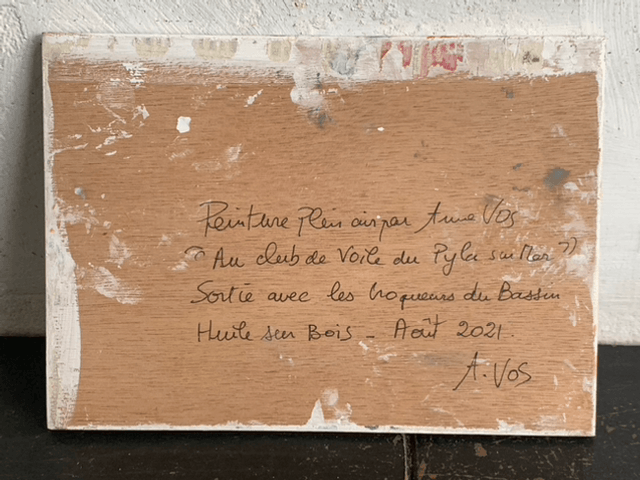 Peinture plein air par Anne VOS
"Au club de Voile du Pyla sur Mer"
Sortie avec les Croqueurs du Bassin
Huile sur Bois - Août 2021
A. VOS